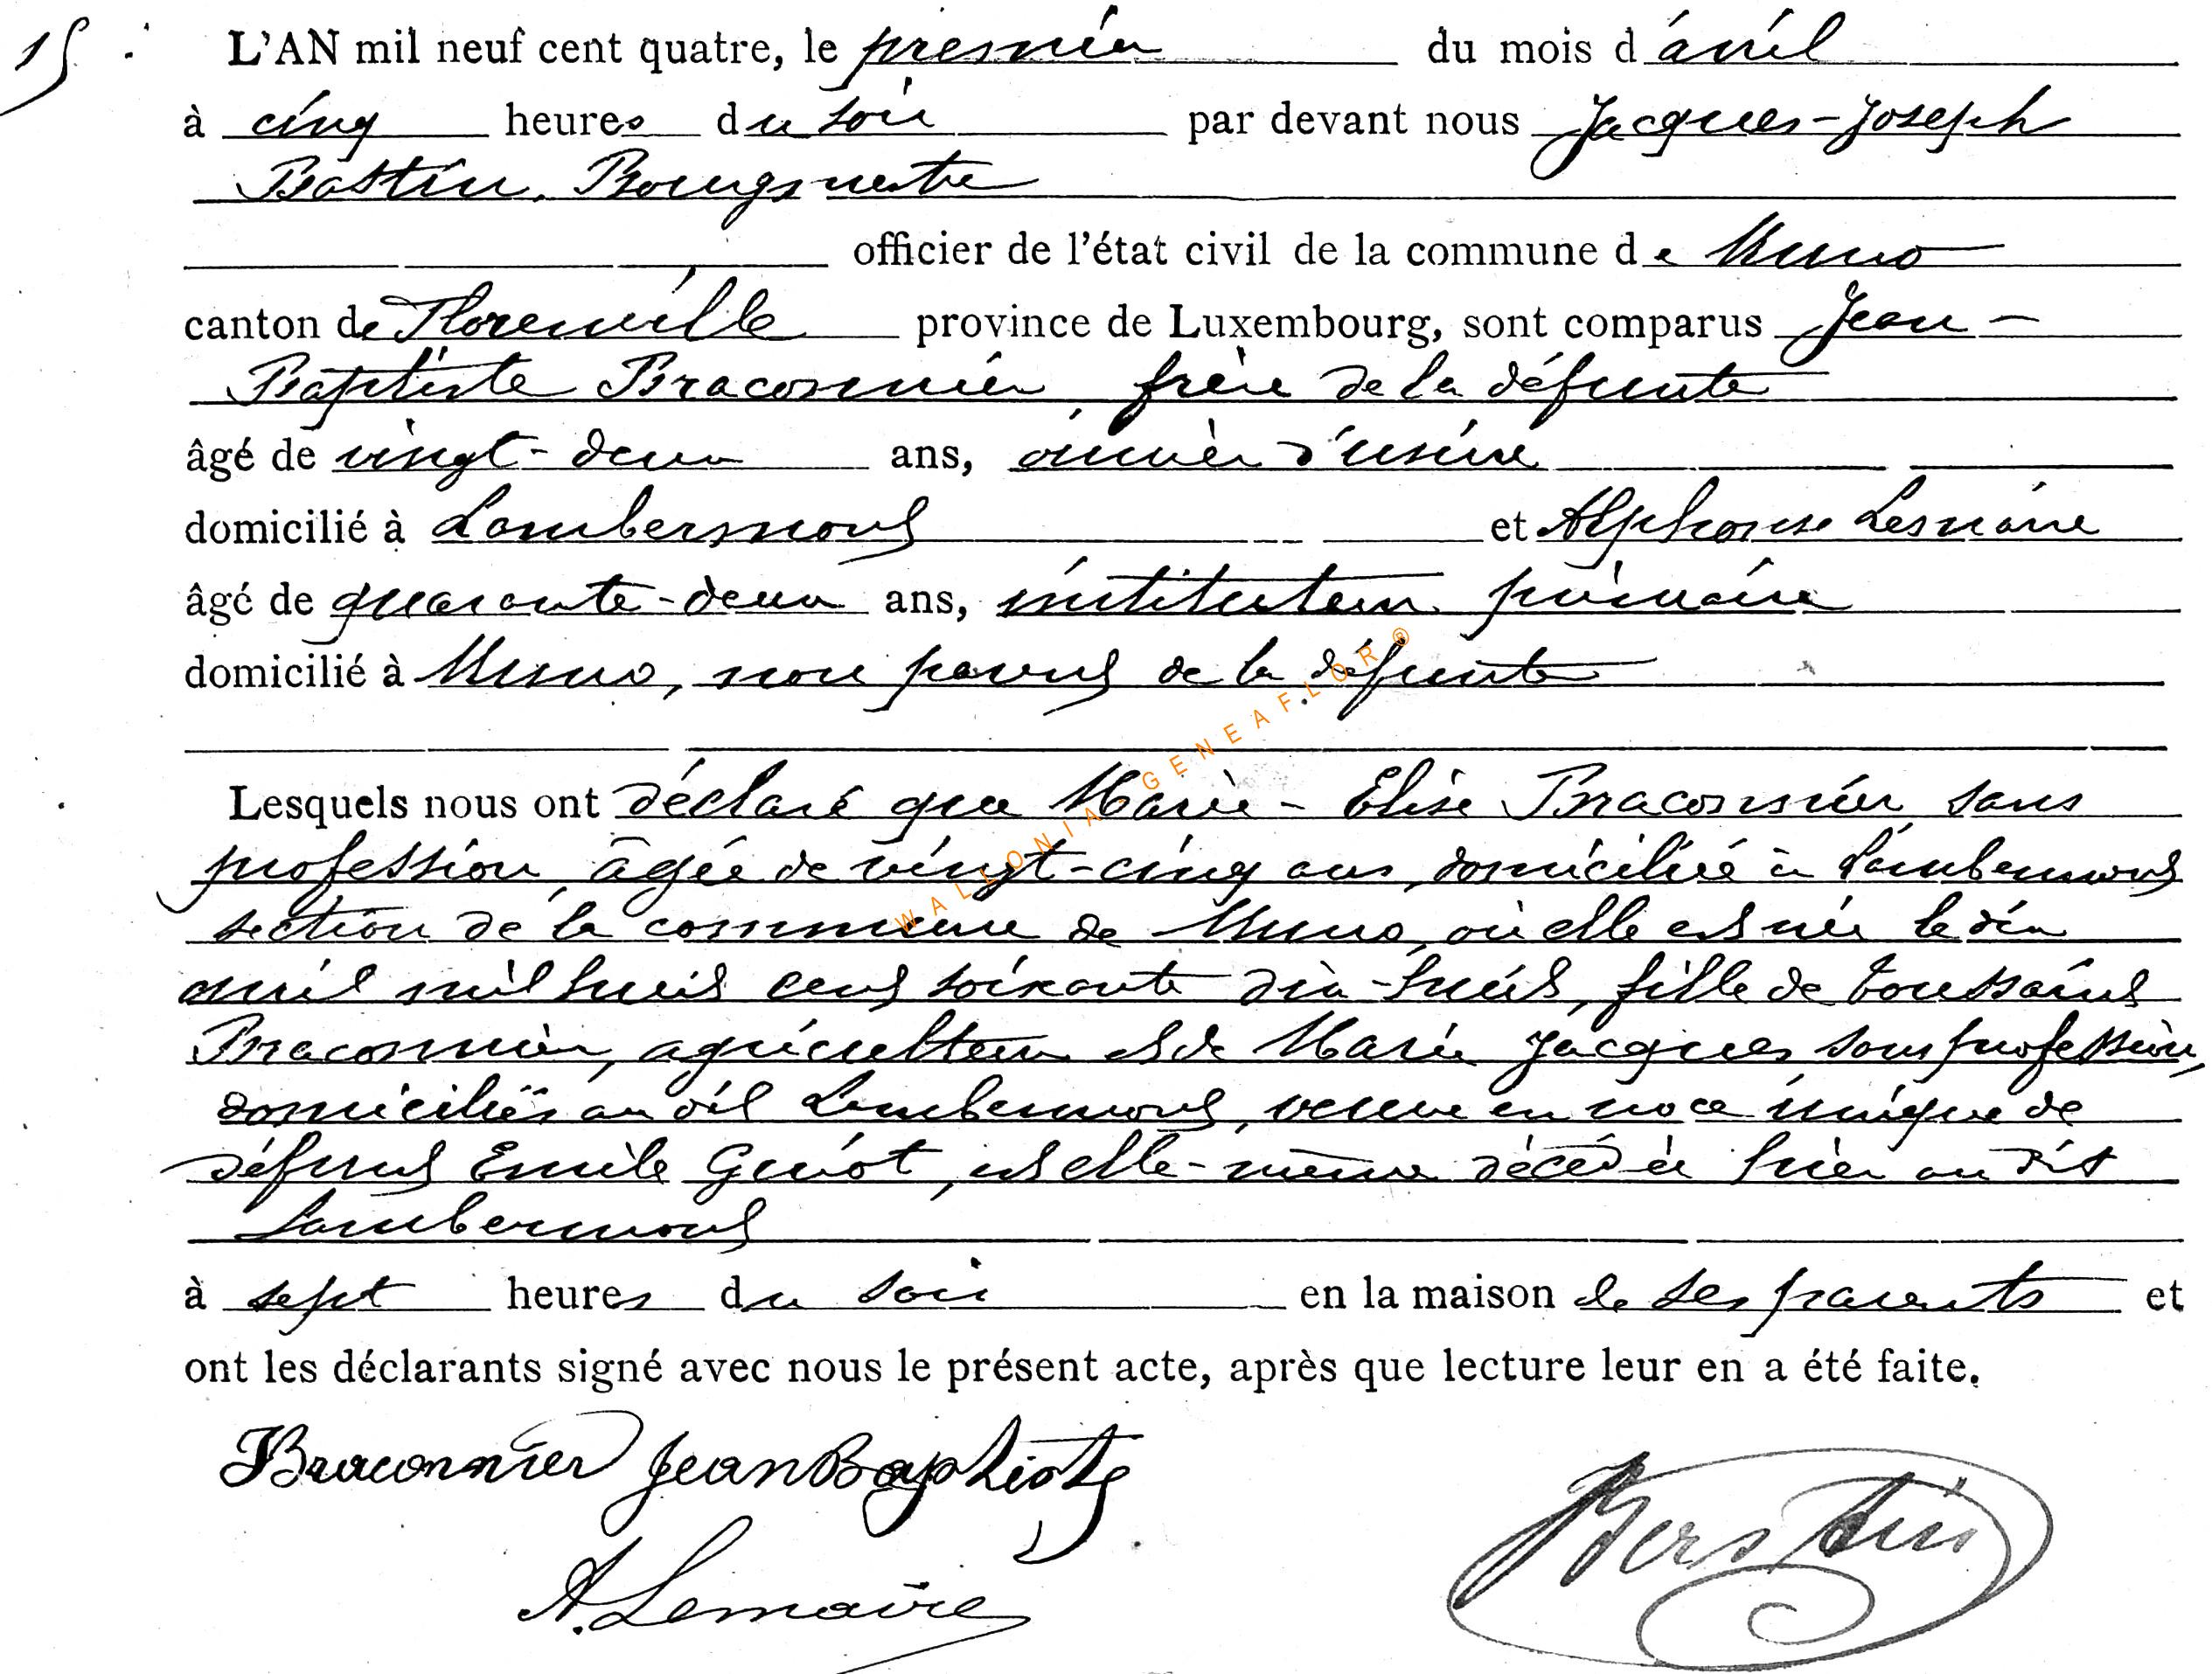 15.
L'AN mil neuf cent quatre, le premier du mois d'avril
à cinq heures du soir par devant nous Jacques-Joseph
Bastin, Bourgmestre
officier de l'état civil de la commune de Muno
canton de Florenville province de Luxembourg, sont comparus Jean-
Baptiste Braconnier, frère de la défunte
âgé de vingt-deux ans, ouvrier d'usine
domicilié à Lambermont et Alphonse Lemaire
âgé de quarante-deux ans, instituteur primaire
domicilié à Muno, non parent de la défunte
WALLONIA GENEAFLOR®
Lesquels nous ont déclaré que Marie-Elise Braconnier sans
profession, âgée de vingt-cinq ans, domiciliée à Lambermont
section de la commune de Muno, où elle est née le dix
avril mil huit cent soixante dix-huit, fille de Toussaint
Braconnier, agriculteur et de Marie Jacques sans profession,
domiciliés au dit Lambermont, veuve en noce unique de
défunt Emile Guiot, est elle-même décédée hier au dit
Lambermont
à sept heures du soir en la maison de ses parents et
ont les déclarants signé avec nous le présent acte, après que lecture leur en a été faite.
Braconnier Jean Baptiste
A. Lemaire
Bastin